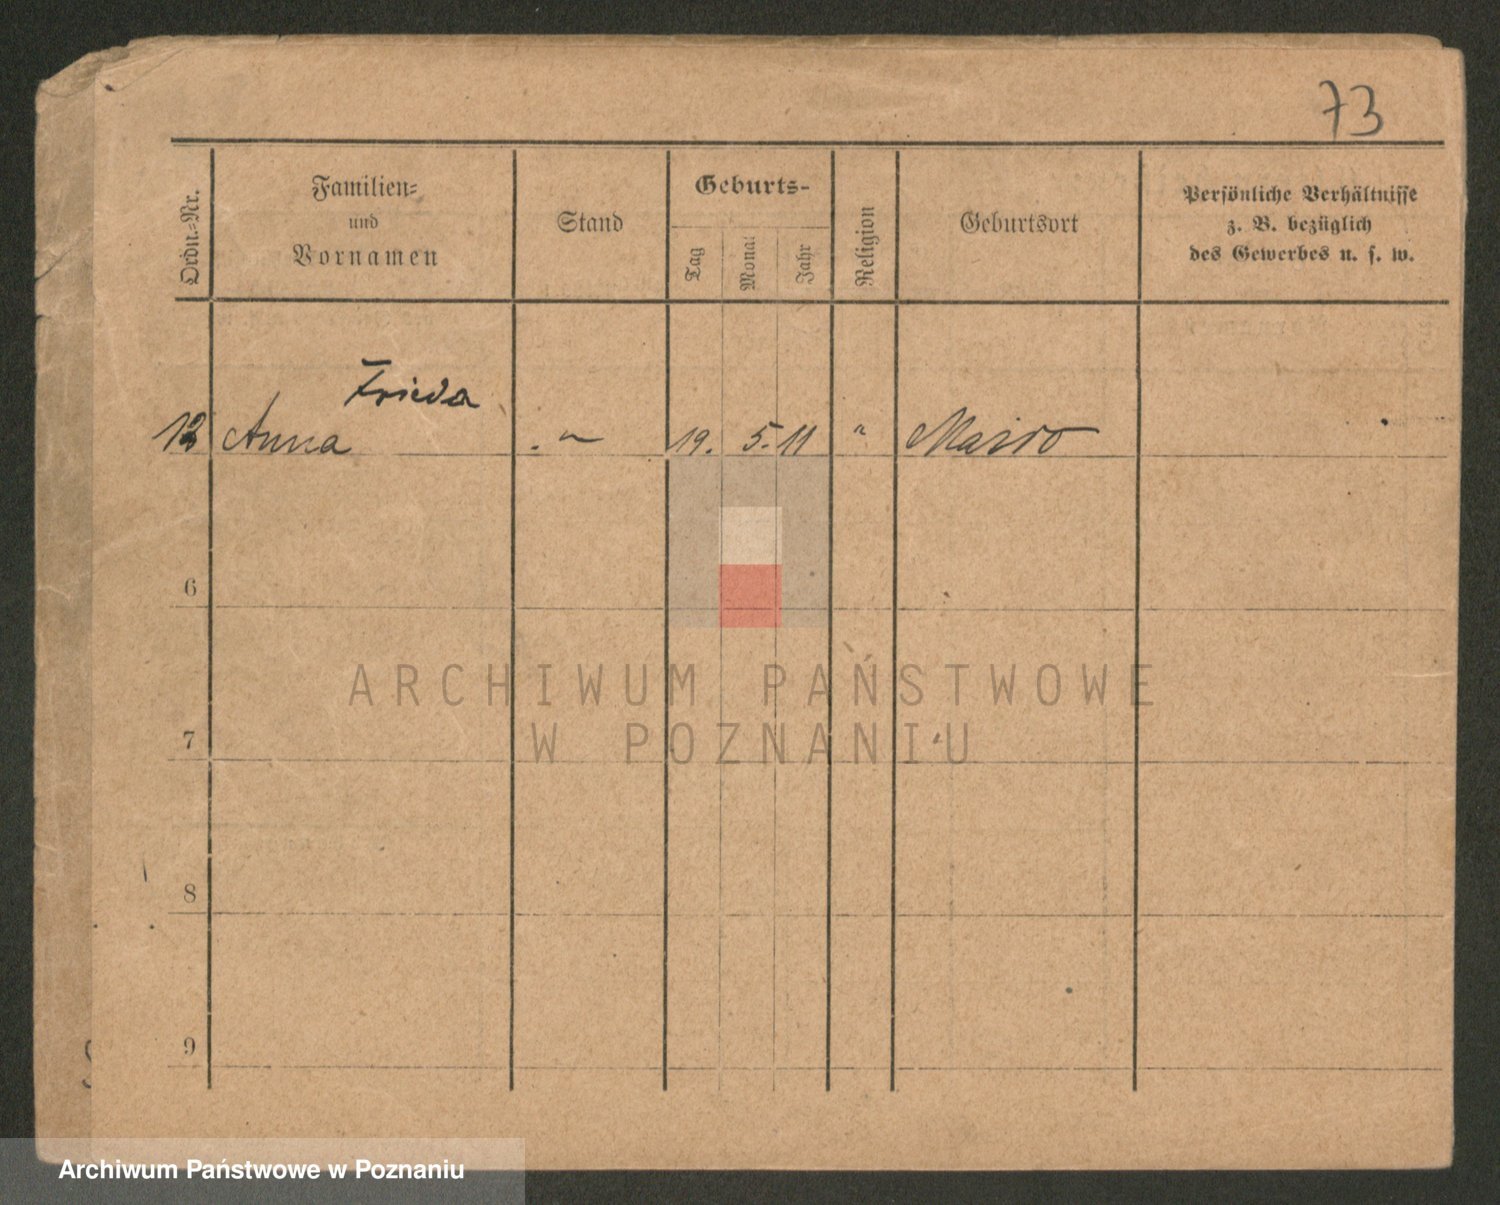 73
Ordn.-Nr.
Familien-
und
Vornamen
Stand
Geburts-
Tag
Monat
Jahr
Religion
Geburtsort
Persönliche Verhältnisse
z. B. bezüglich
des Gewerbes u. s. w.
Frieda
Anna . " 19. 5. 11 "
6
7
8
9
ARCHIWUM PAŃSTWOWE
W POZNANIU
Archiwum Państwowe w Poznaniu